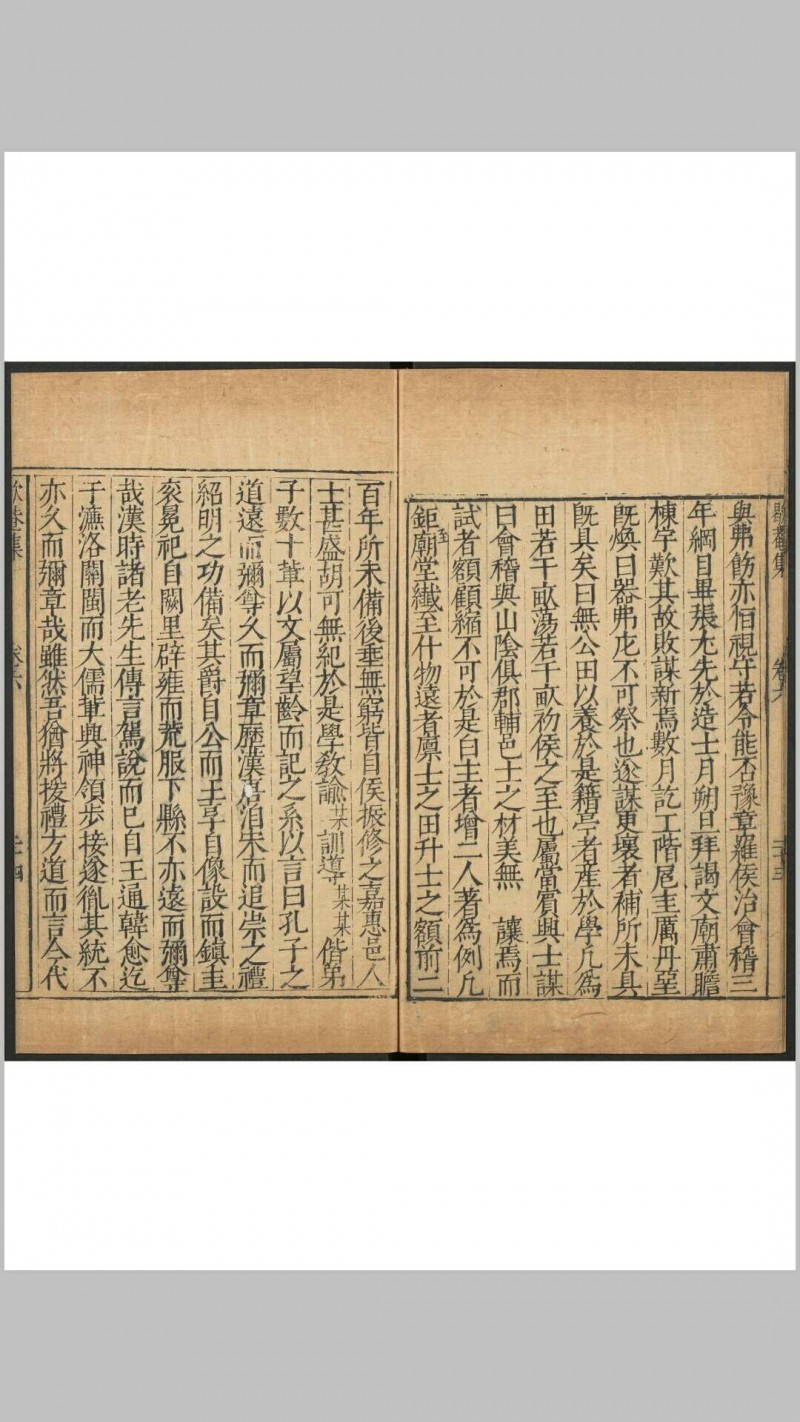 與弗飭亦恒視守若令能否豫章羅侯治會稽三
年綱目畢張尤先於造士月朔旦拜謁文廟肅瞻
棟宇歎其故敗謀新焉數月訖工階戺圭厲丹堊
旣煥曰器弗庀不可祭也遂謀更壞者補所未具
旣具矣曰無公田以養於是籍亭者產於學凡為
田若干畝蕩若干畝初侯之至也屬當賓興士謀
曰會稽與山陰俱郡輔邑士之材美無 讓焉而
試者額顧縮不可於是白主者增二人著為例凡
鉅廟堂纎至什物遠者廪士之田升士之額前二
卷六
二十三
百年所未備後垂無窮皆自侯振修之嘉惠邑人
士甚盛胡可無紀於是學敎諭某訓導某某偕弟
子數十輩以文屬望齡而記之系以言曰孔子之
道遠而彌尊久而彌章歷漢唐洎宋而追崇之禮
紹明之功備矣其爵自公而王享自像設而鎮圭
衮冕祀自闕里辟雍而荒服下縣不亦遠而彌尊
哉漢時諸老先生傳言駕說而已自王通韓愈迄
于濂洛關閩而大儒輩興神領歩接遂胤其統不
亦久而彌章哉雖然吾猶將援禮方道而言今代
歇菴集
卷六
二十四